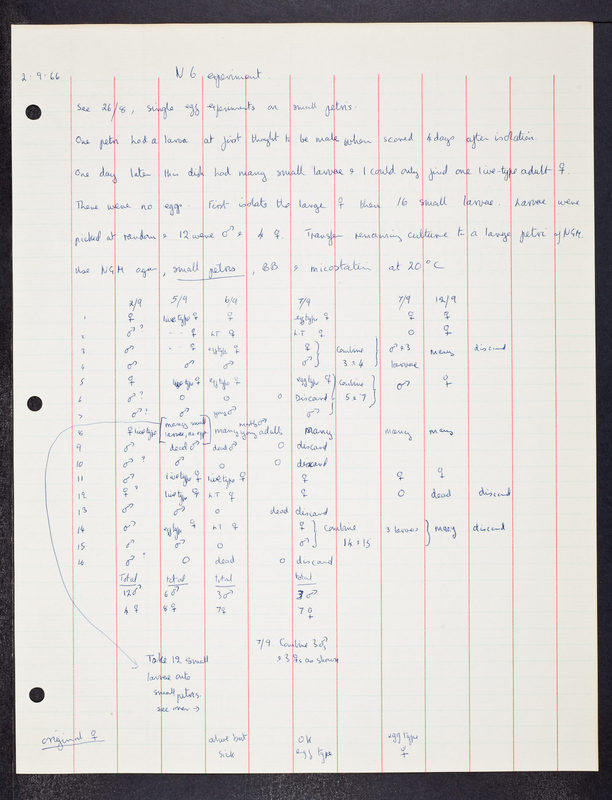 2.9.66 N6 experiment.
See 26/8, single egg experiments on small petris.
One petri had a larva at first thought to be male when scored 4 days after isolation.
One day later this dish had many small larvae & I could only find one live-type adult ♀.
There were no eggs. First isolate the large ♀ then 16 small larvae. Larvae were
picked at random & 12 were ♂ & 4 ♀. Transfer remaining culture to a large petri of NGM.
Use NGM again, small petris, BB & micostatin at 20°C
2/9 5/9 6/9 7/9 7/9 12/9
1 ♀ live type ♀ ♀ egg type ♀ ♀ ♀
2 ♂? " " ♀ L.T ♀ L.T ♀ O ♀
3 ♂ " " ♀ egg type ♀ ♀ } Combine } ♂ + 3 many discard
4 ♂ ♂ ♂ ♂ 3 + 4 larvae
5 ♀ live type ♀ egg type ♀ egg type ♀ } Combine ♂ ♀
6 ♂? O O O Discard 5 + 7
7 ♂? ♂ young ♂ ♂
8 ♀ live type [many small larvae, no eggs] many young adults many many many
9 ♂ dead ♂ dead ♂ O discard
10 ♂? ♂ O O discard
11 ♂ live type ♀ live type ♀ ♀ ♀ ♀
12 ♀? live type ♀ L.T ♀ ♀ O dead discard
13 ♂ ♂ O dead discard
14 ♂ egg type ♀ L.T ♀ ♀ } Combine 3 larvae } many discard
15 ♂ ♂ O ♂ 14 + 15
16 ♂ O dead O discard
Total total total total
12 ♂ 6 ♂ 3 ♂ 3 ♂
4 ♀ 8 ♀ 7 ♀ 7 ♀
7/9. Combine 3 ♂
& 3 ♀s as shown
Take 12 small
larvae onto
small petris.
see over →
original ♀ alive but OK egg type
sick egg type ♀